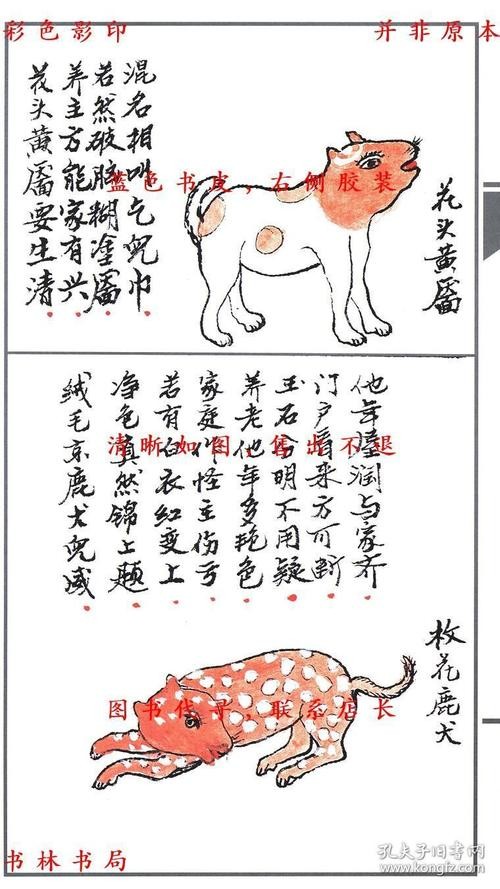 彩色影印
并非原本
花头黄靥
花头黄靥要生清
养主方能家有兴
若然破脸糊塗靥
混名相叫乞兒巾
蓝色书皮,右侧胶装
枚花鹿犬
绒毛京鹿犬兒威
净色真然锦上题
若有白衣红变上
家庭作怪主伤亏
养老他年多艳色
玉石合明不用疑
门户看来方可断
他年隆润与家齐
清晰如图,售出不退
图书代寻,联系店长
书林书局
孔夫子旧书网
www.kongfz.com